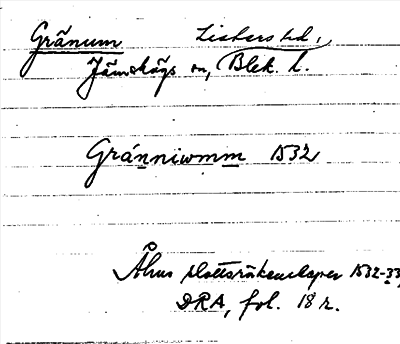 Gränum Listers hd,
Jämshögs sn, Blek. l.
Gránniwmm 1532
Åhus slottsräkenskaper 1532-33,
DRA, fol. 18 r.